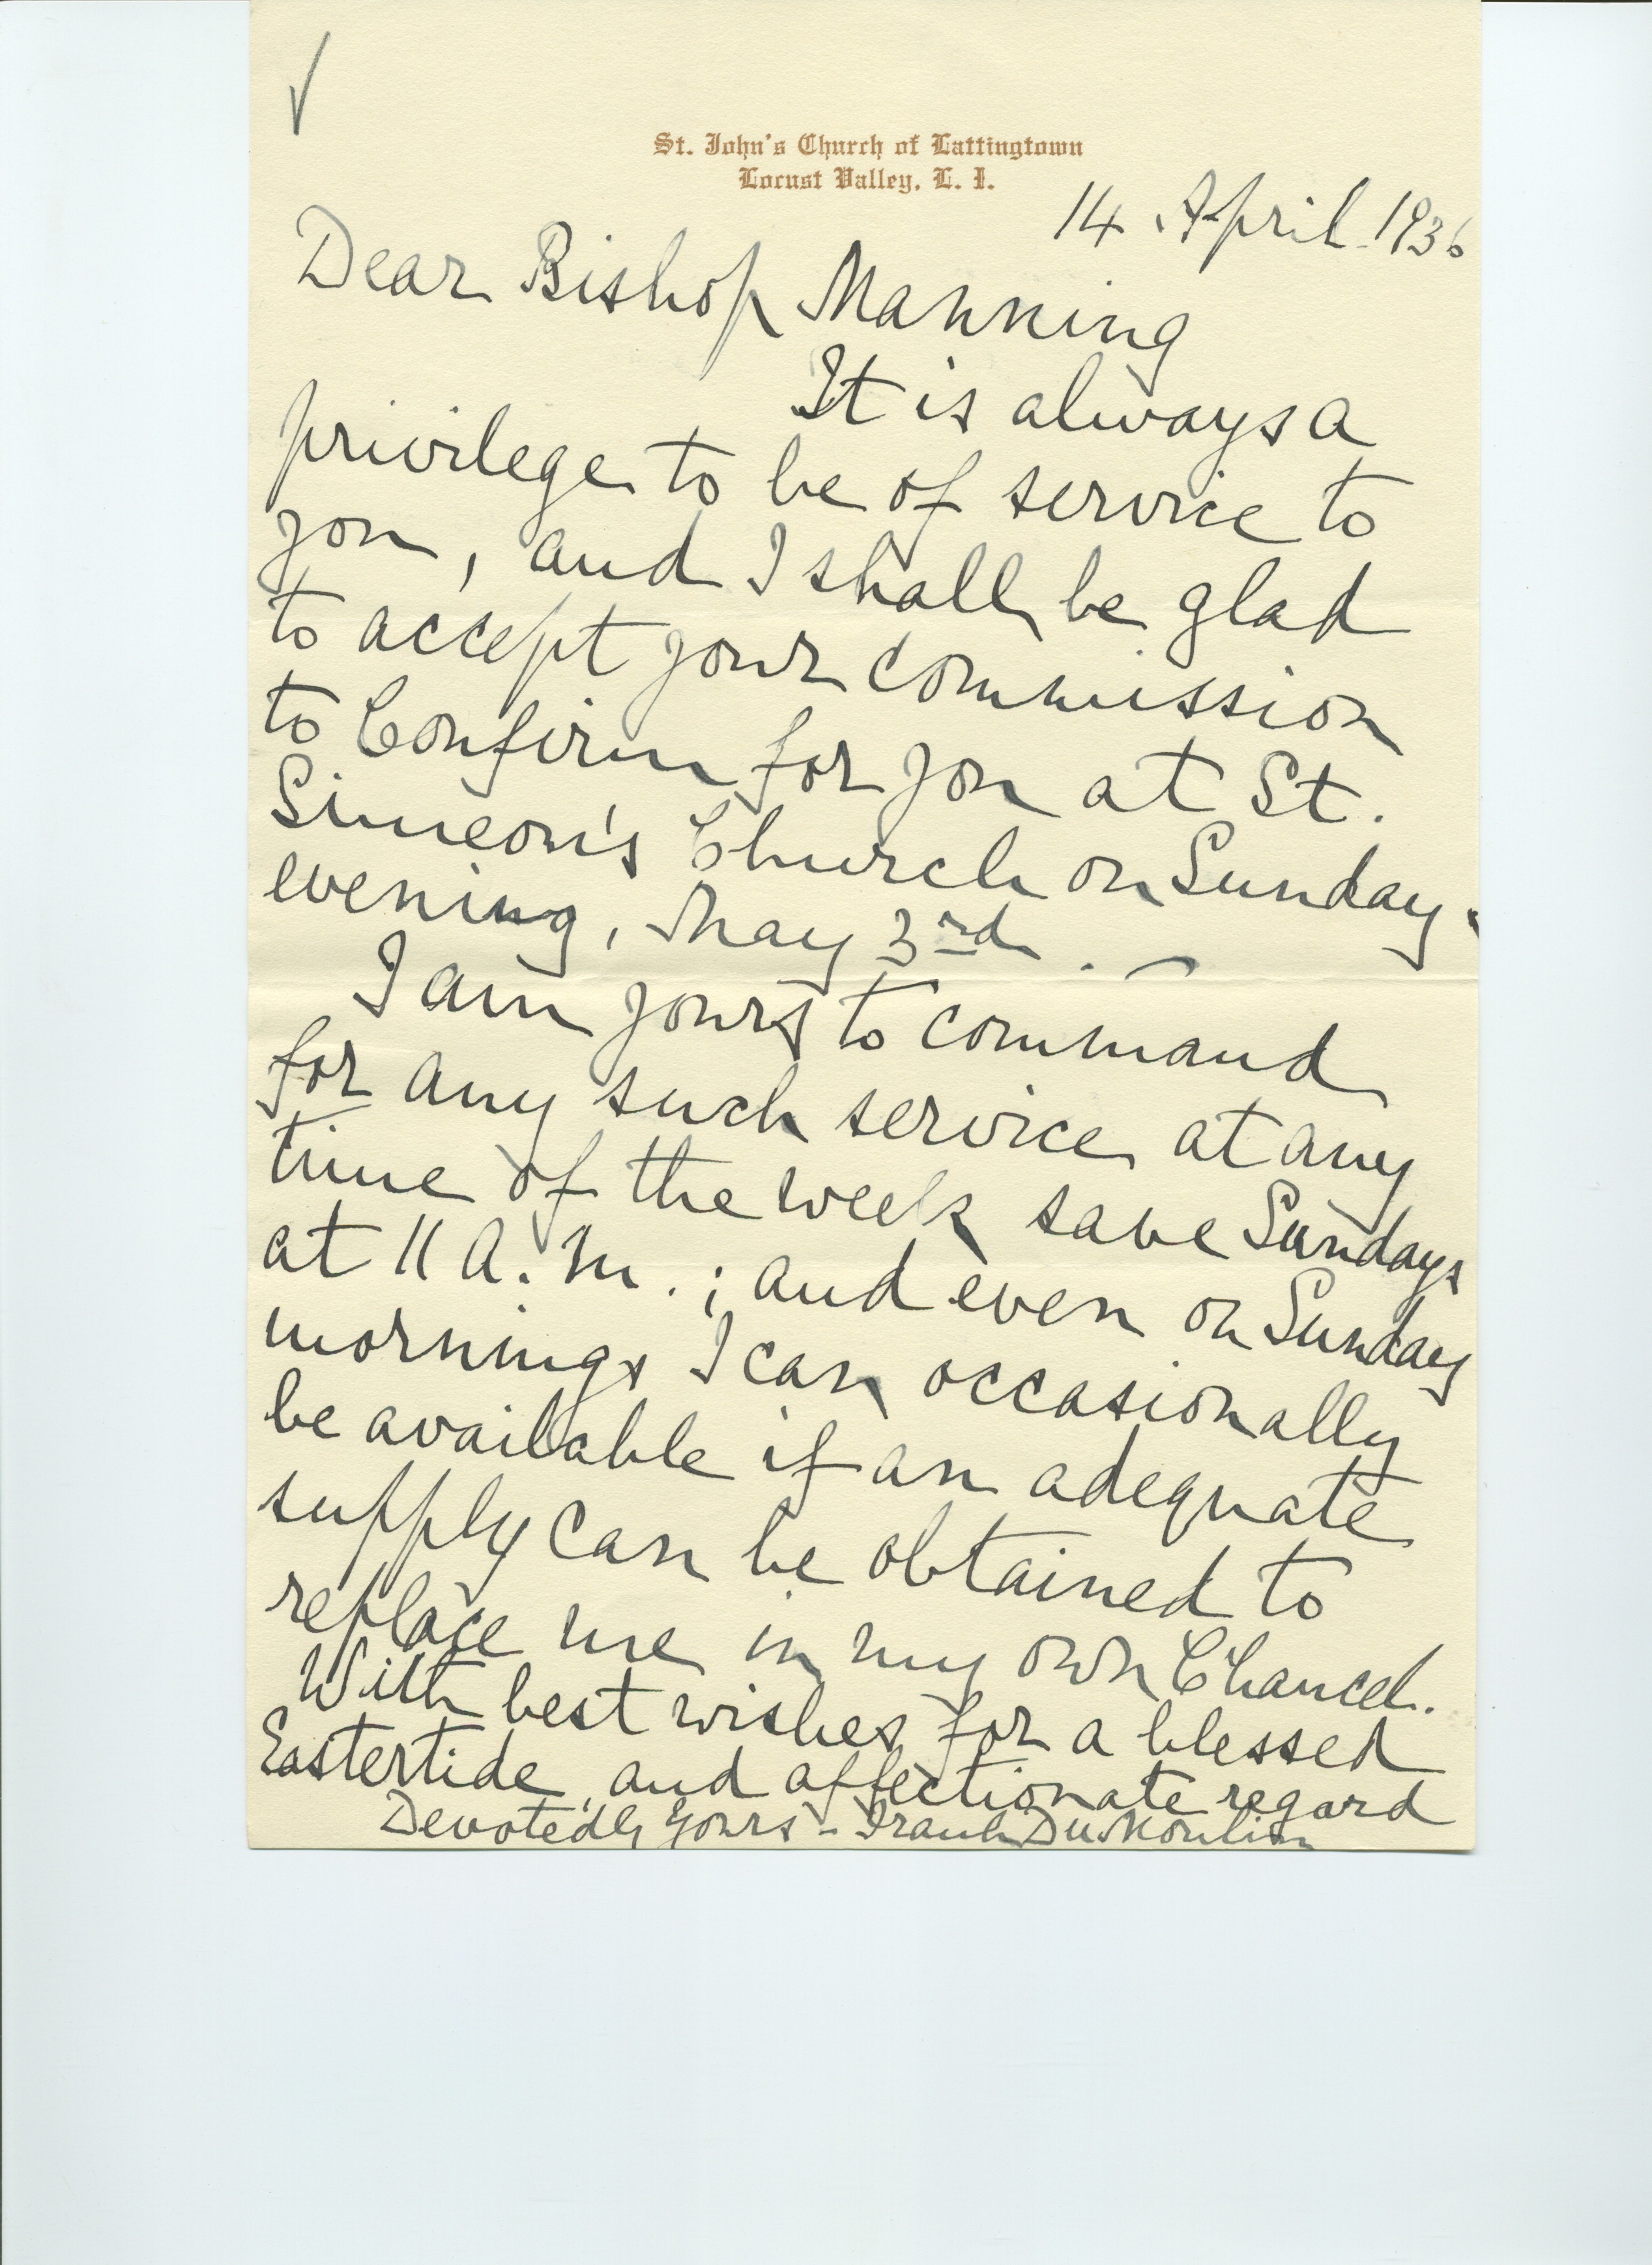 St. John's Church of Lattingtown
Locust Valley, L. I.
14 April 1936
Dear Bishop Manning
It is always a
privilege to be of service to
you, and I shall be glad
to accept your commission
to Confirm for you at St.
Simeon's Church on Sunday
evening, May 3rd. —
I am yours to command
for any such service at any
time of the week save Sundays
at 11 A.M.; and even on Sunday
mornings I can occasionally
be available if an adequate
supply can be obtained to
replace me in my own Chancel.
With best wishes for a blessed
Eastertide, and affectionate regard
Devotedly Yours - Frank Du Moulin